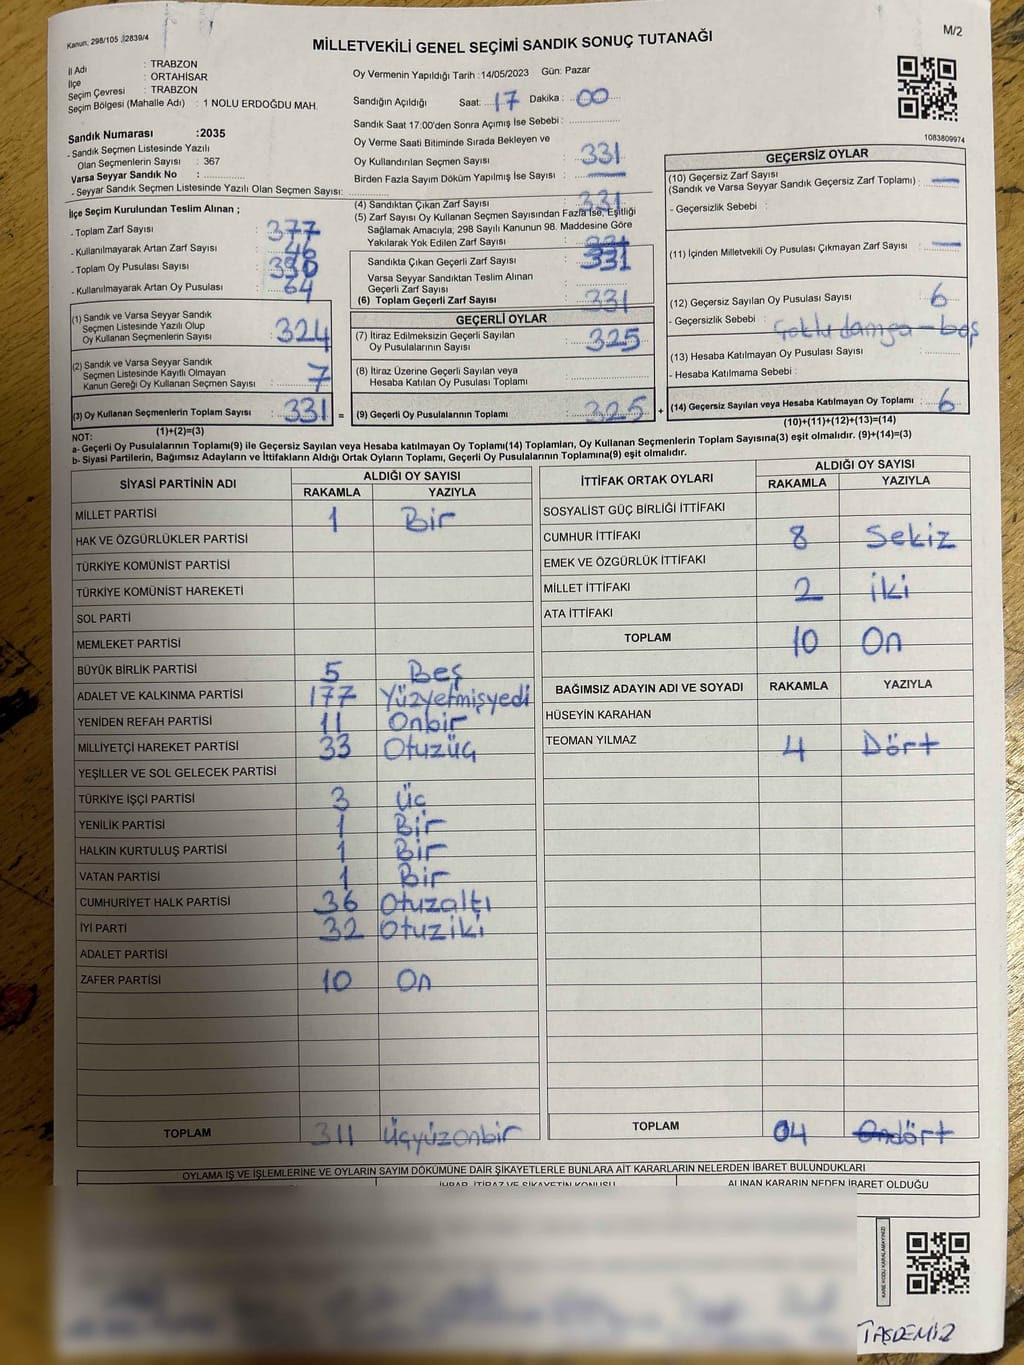 Kanun, 298/105 ,2839/4
M/2
MİLLETVEKİLİ GENEL SEÇİMİ SANDIK SONUÇ TUTANAĞI
İl Adı : TRABZON
İlçe : ORTAHİSAR
Seçim Çevresi : TRABZON
Seçim Bölgesi (Mahalle Adı) : 1 NOLU ERDOĞDU MAH.
Sandık Numarası :2035
- Sandık Seçmen Listesinde Yazılı
Olan Seçmenlerin Sayısı : 367
Varsa Seyyar Sandık No :
- Seyyar Sandık Seçmen Listesinde Yazılı Olan Seçmen Sayısı:
Oy Vermenin Yapıldığı Tarih :14/05/2023 Gün: Pazar
Sandığın Açıldığı Saat: 17 Dakika : 00
Sandık Saat 17:00'den Sonra Açımış İse Sebebi :
Oy Verme Saati Bitiminde Sırada Bekleyen ve
Oy Kullandırılan Seçmen Sayısı : 331
Birden Fazla Sayım Döküm Yapılmış İse Sayısı : —
1083809974
İlçe Seçim Kurulundan Teslim Alınan ;
- Toplam Zarf Sayısı : 377
- Kullanılmayarak Artan Zarf Sayısı : 46
- Toplam Oy Pusulası Sayısı
- Kullanılmayarak Artan Oy Pusulası : 64
(1) Sandık ve Varsa Seyyar Sandık
Seçmen Listesinde Yazılı Olup
Oy Kullanan Seçmenlerin Sayısı : 324
(2) Sandık ve Varsa Seyyar Sandık
Seçmen Listesinde Kayıtlı Olmayan
Kanun Gereği Oy Kullanan Seçmen Sayısı : 7
(3) Oy Kullanan Seçmenlerin Toplam Sayısı : 331 =
(1)+(2)=(3)
(4) Sandıktan Çıkan Zarf Sayısı : 331
(5) Zarf Sayısı Oy Kullanan Seçmen Sayısından Fazla İse, Eşitliği
Sağlamak Amacıyla, 298 Sayılı Kanunun 98. Maddesine Göre
Yakılarak Yok Edilen Zarf Sayısı :
Sandıkta Çıkan Geçerli Zarf Sayısı : 331
Varsa Seyyar Sandıktan Teslim Alınan
Geçerli Zarf Sayısı :
(6) Toplam Geçerli Zarf Sayısı : 331
GEÇERLİ OYLAR
(7) İtiraz Edilmeksizin Geçerli Sayılan
Oy Pusulalarının Sayısı : 325
(8) İtiraz Üzerine Geçerli Sayılan veya
Hesaba Katılan Oy Pusulası Toplamı :
(9) Geçerli Oy Pusulalarının Toplamı : 325 +
GEÇERSİZ OYLAR
(10) Geçersiz Zarf Sayısı
(Sandık ve Varsa Seyyar Sandık Geçersiz Zarf Toplamı) : —
- Geçersizlik Sebebi :
(11) İçinden Milletvekili Oy Pusulası Çıkmayan Zarf Sayısı : —
(12) Geçersiz Sayılan Oy Pusulası Sayısı : 6
- Geçersizlik Sebebi : Çoklu damga - boş
(13) Hesaba Katılmayan Oy Pusulası Sayısı :
- Hesaba Katılmama Sebebi :
(14) Geçersiz Sayılan veya Hesaba Katılmayan Oy Toplamı : 6
(10)+(11)+(12)+(13)=(14)
NOT:
a- Geçerli Oy Pusulalarının Toplamı(9) ile Geçersiz Sayılan veya Hesaba katılmayan Oy Toplamı(14) Toplamları, Oy Kullanan Seçmenlerin Toplam Sayısına(3) eşit olmalıdır. (9)+(14)=(3)
b- Siyasi Partilerin, Bağımsız Adayların ve İttifakların Aldığı Ortak Oyların Toplamı, Geçerli Oy Pusulalarının Toplamına(9) eşit olmalıdır.
SİYASİ PARTİNİN ADI ALDIĞI OY SAYISI
RAKAMLA YAZIYLA
MİLLET PARTİSİ 1 Bir
HAK VE ÖZGÜRLÜKLER PARTİSİ
TÜRKİYE KOMÜNİST PARTİSİ
TÜRKİYE KOMÜNİST HAREKETİ
SOL PARTİ
MEMLEKET PARTİSİ
BÜYÜK BİRLİK PARTİSİ 5 Beş
ADALET VE KALKINMA PARTİSİ 177 Yüzyetmişyedi
YENİDEN REFAH PARTİSİ 11 Onbir
MİLLİYETÇİ HAREKET PARTİSİ 33 Otuzüç
YEŞİLLER VE SOL GELECEK PARTİSİ
TÜRKİYE İŞÇİ PARTİSİ 3 Üç
YENİLİK PARTİSİ 1 Bir
HALKIN KURTULUŞ PARTİSİ 1 Bir
VATAN PARTİSİ 1 Bir
CUMHURİYET HALK PARTİSİ 36 Otuzaltı
İYİ PARTİ 32 Otuziki
ADALET PARTİSİ
ZAFER PARTİSİ 10 On
TOPLAM 311 Üçyüzonbir
İTTİFAK ORTAK OYLARI ALDIĞI OY SAYISI
RAKAMLA YAZIYLA
SOSYALİST GÜÇ BİRLİĞİ İTTİFAKI
CUMHUR İTTİFAKI 8 Sekiz
EMEK VE ÖZGÜRLÜK İTTİFAKI
MİLLET İTTİFAKI 2 İki
ATA İTTİFAKI
TOPLAM 10 On
BAĞIMSIZ ADAYIN ADI VE SOYADI RAKAMLA YAZIYLA
HÜSEYİN KARAHAN
TEOMAN YILMAZ 4 Dört
TOPLAM 04 dört
OYLAMA İŞ VE İŞLEMLERİNE VE OYLARIN SAYIM DÖKÜMÜNE DAİR ŞİKAYETLERLE BUNLARA AİT KARARLARIN NELERDEN İBARET BULUNDUKLARI
İHBAR, İTİRAZ VE ŞİKAYETİN KONUSU ALINAN KARARIN NEDEN İBARET OLDUĞU
KARE KODU KARALAMAYINIZ!
TAŞDEMİZ